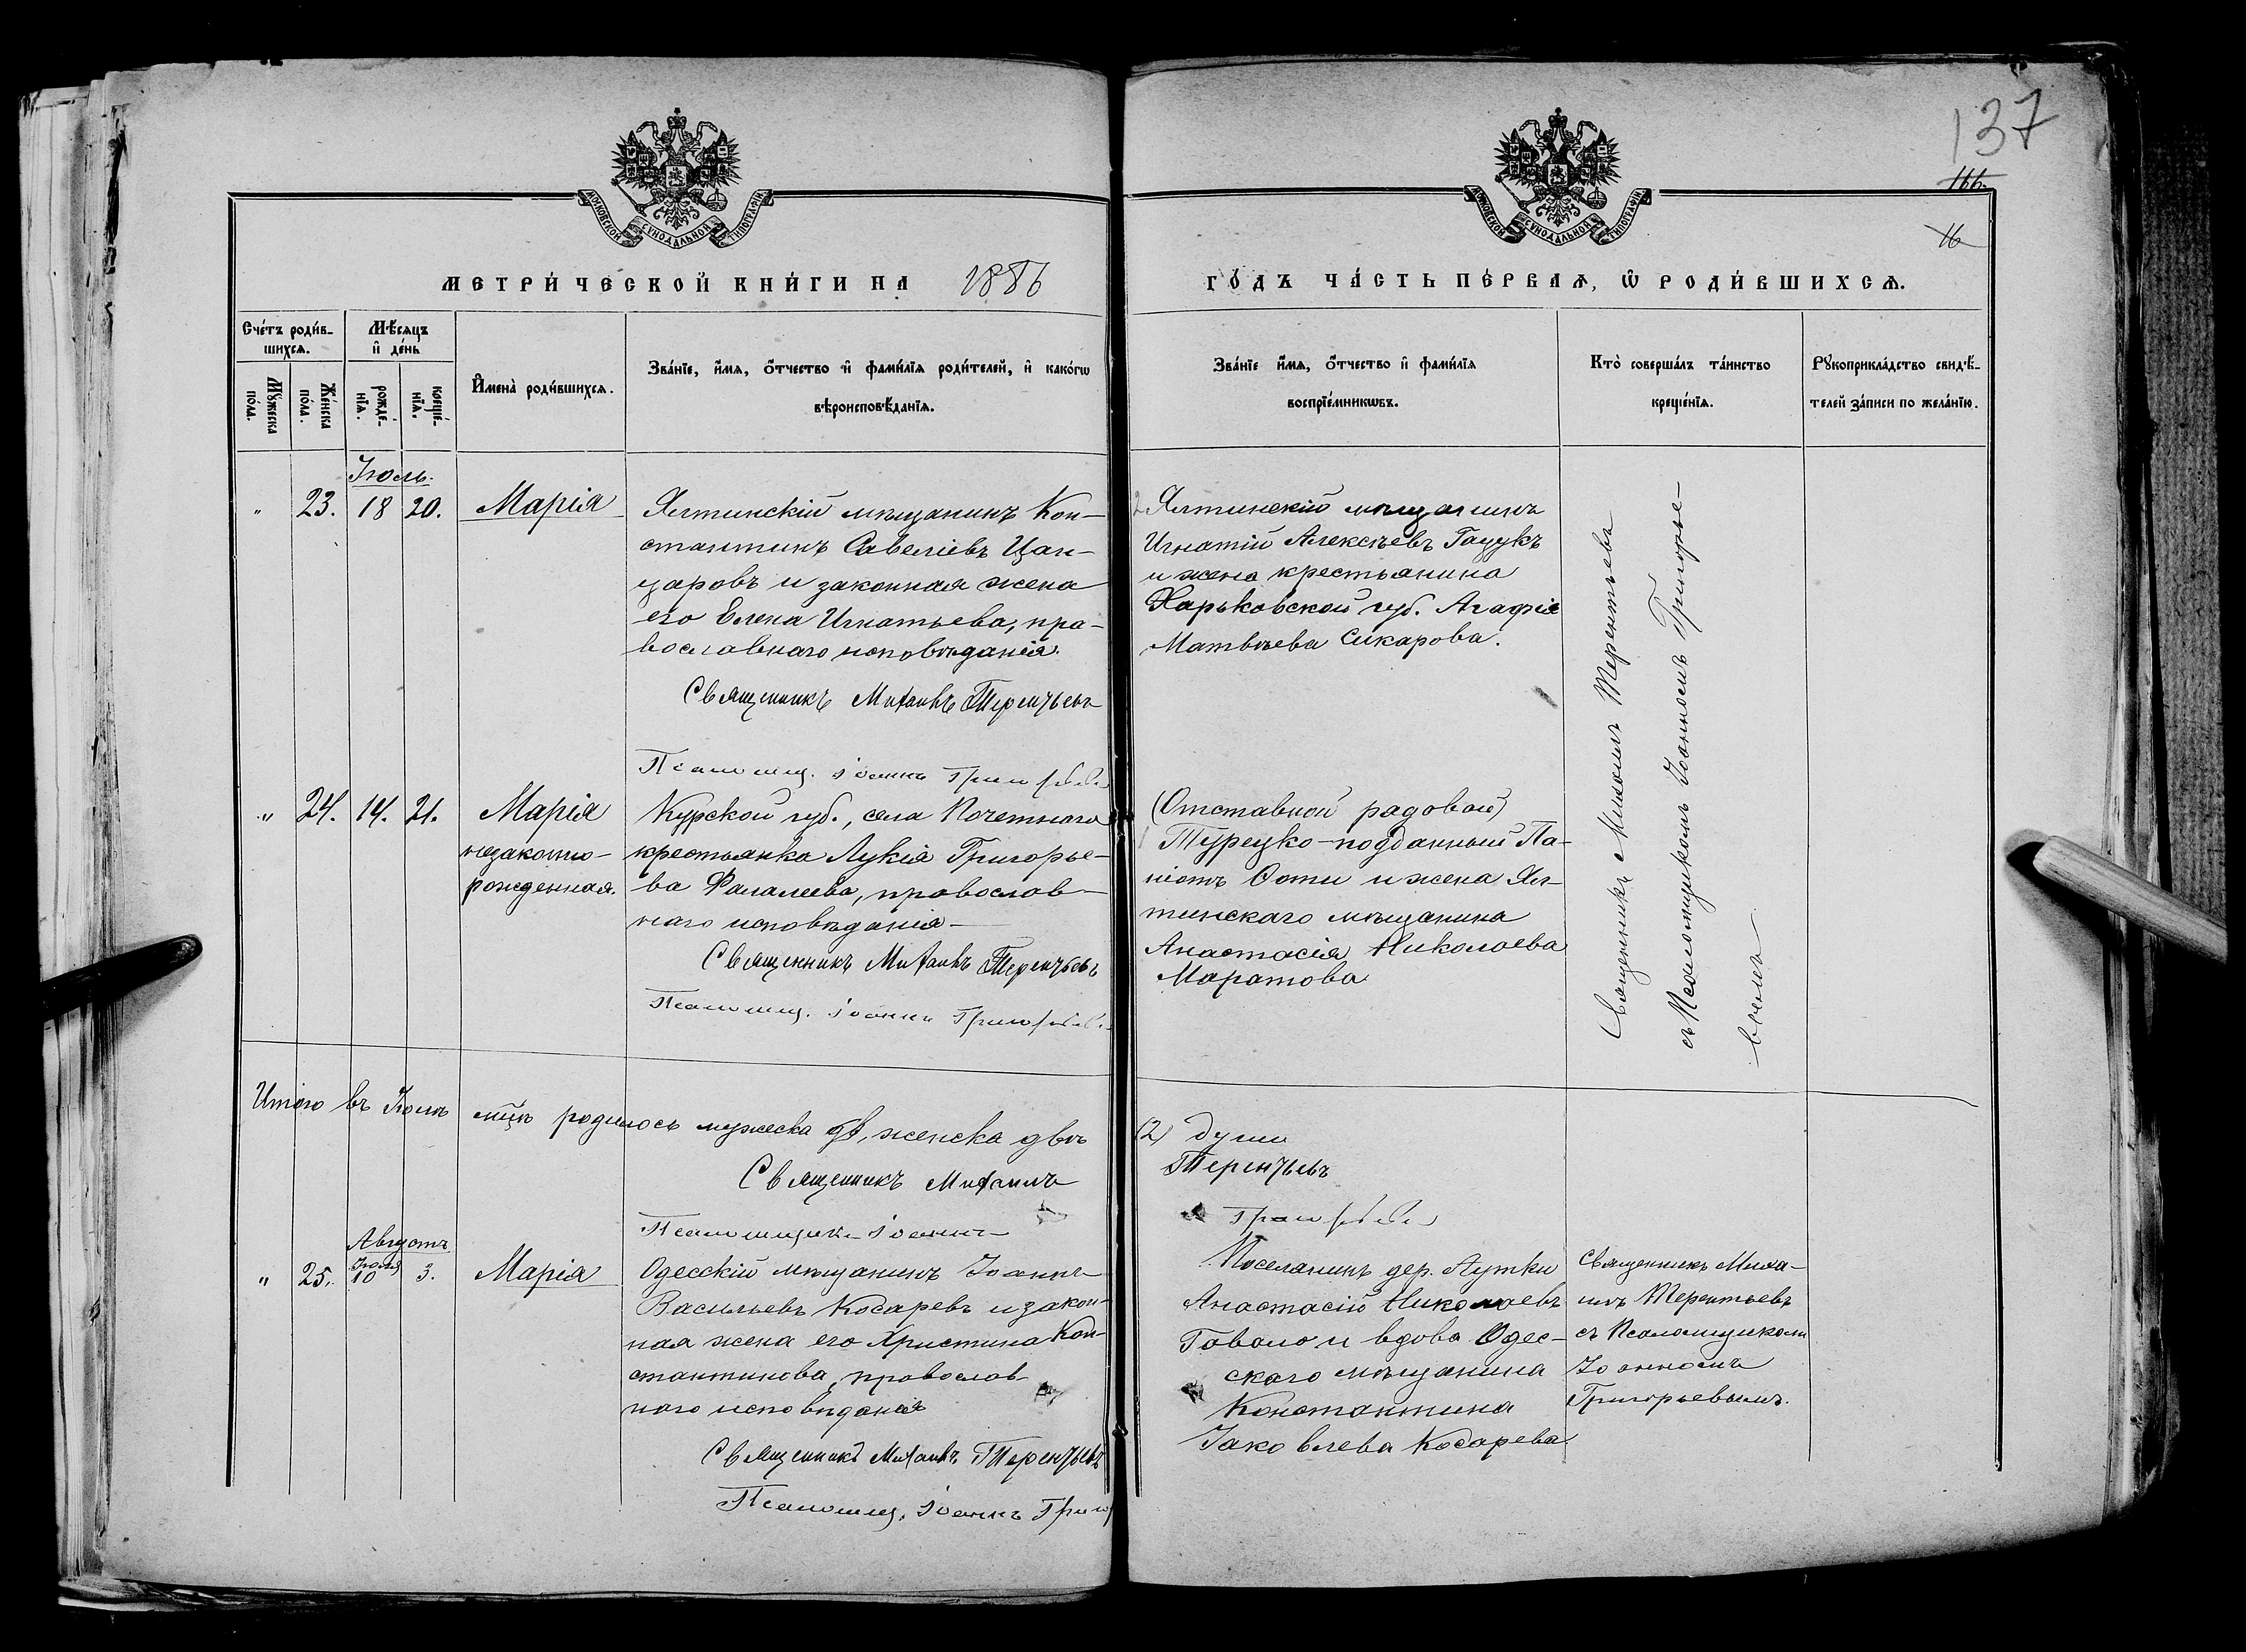 137
166.
16
МОСКОВСКОЙ СУНОДАЛЬНОЙ ТИПОГРАФІИ
МОСКОВСКОЙ СУНОДАЛЬНОЙ ТИПОГРАФІИ
МЕТРИ́ЧЕСКОЙ КНИ́ГИ НА 1886
ГО́ДЪ ЧА́СТЬ ПЕ́РВАѦ, Ѿ РОДИ́ВШИХСѦ.
Сче́тъ роди́в-
шихсѧ.
Мꙋ́жеска
по́ла.
Же́нска
по́ла.
Мѣ́сѧцъ
и҆ де́нь
рожде́-
нїѧ.
креще́-
нїѧ.
И҆мена̀ роди́вшихсѧ.
Зва́нїе, и҆́мѧ, ѻ҆́тчество и҆ фами́лїѧ роди́телей, и҆ како́гѡ
вѣроисповѣ́данїѧ.
Зва́нїе и҆́мѧ, ѻ҆́тчество и҆ фами́лїѧ
воспрїе́мникѡвъ.
Кто̀ соверша́лъ та́инство
креще́нїѧ.
Рꙋкоприкла́дство свидѣ́-
телей за́писи по жела́нїю.
Іюль.
" 23. 18 20. Марія
Ялтинскій мѣщанинъ Кон-
стантинъ Савеліевъ Цан-
царовъ и законная жена
его Елена Игнатьева, пра-
вославнаго исповѣданія.
Священникъ Михаилъ Терентьевъ
Псаломщ. Іоаннъ Григорьевъ
Ялтинскій мѣщанинъ
Игнатій Алексѣевъ Гацукъ
и жена крестьянина
Харьковской губ. Агафія
Матвѣева Сикарова.
Священникъ Михаилъ Терентьевъ
съ Псаломщикомъ Іоанномъ Григорье-
вымъ
" 24. 14. 21. Марія
незаконно-
рожденная.
Курской губ., села Почетнаго
крестьянка Лукія Григорье-
ва Фалалеева, православ-
наго исповѣданія
Священникъ Михаилъ Терентьевъ
Псаломщ. Іоаннъ Григорьевъ
(Отставной рядовой)
Турецко-подданный Па-
Соти и жена Ял-
тинскаго мѣщанина
Анастасія Николаева
Маратова
Итого въ Іюлѣ мцѣ родилось мужеска женска двѣ
(2) души
Священникъ Михаилъ
Терентьевъ
Псаломщикъ Іоаннъ
Григорьевъ
Августъ
" 25. Іюля 10 3. Марія
Одесскій мѣщанинъ Іоаннъ
Васильевъ Косаревъ и закон-
ная жена его Христина Кон-
стантинова, православ-
наго исповѣданія
Священникъ Михаилъ Терентьевъ
Псаломщ. Іоаннъ Григор
Поселянинъ дер. Аутки
Анастасій Николаевъ
Говало и вдова Одес-
скаго мѣщанина
Константина
Іаковлева Косарева
Священникъ Миха-
илъ Терентьевъ
съ Псаломщикомъ
Іоанномъ
Григорьевымъ.